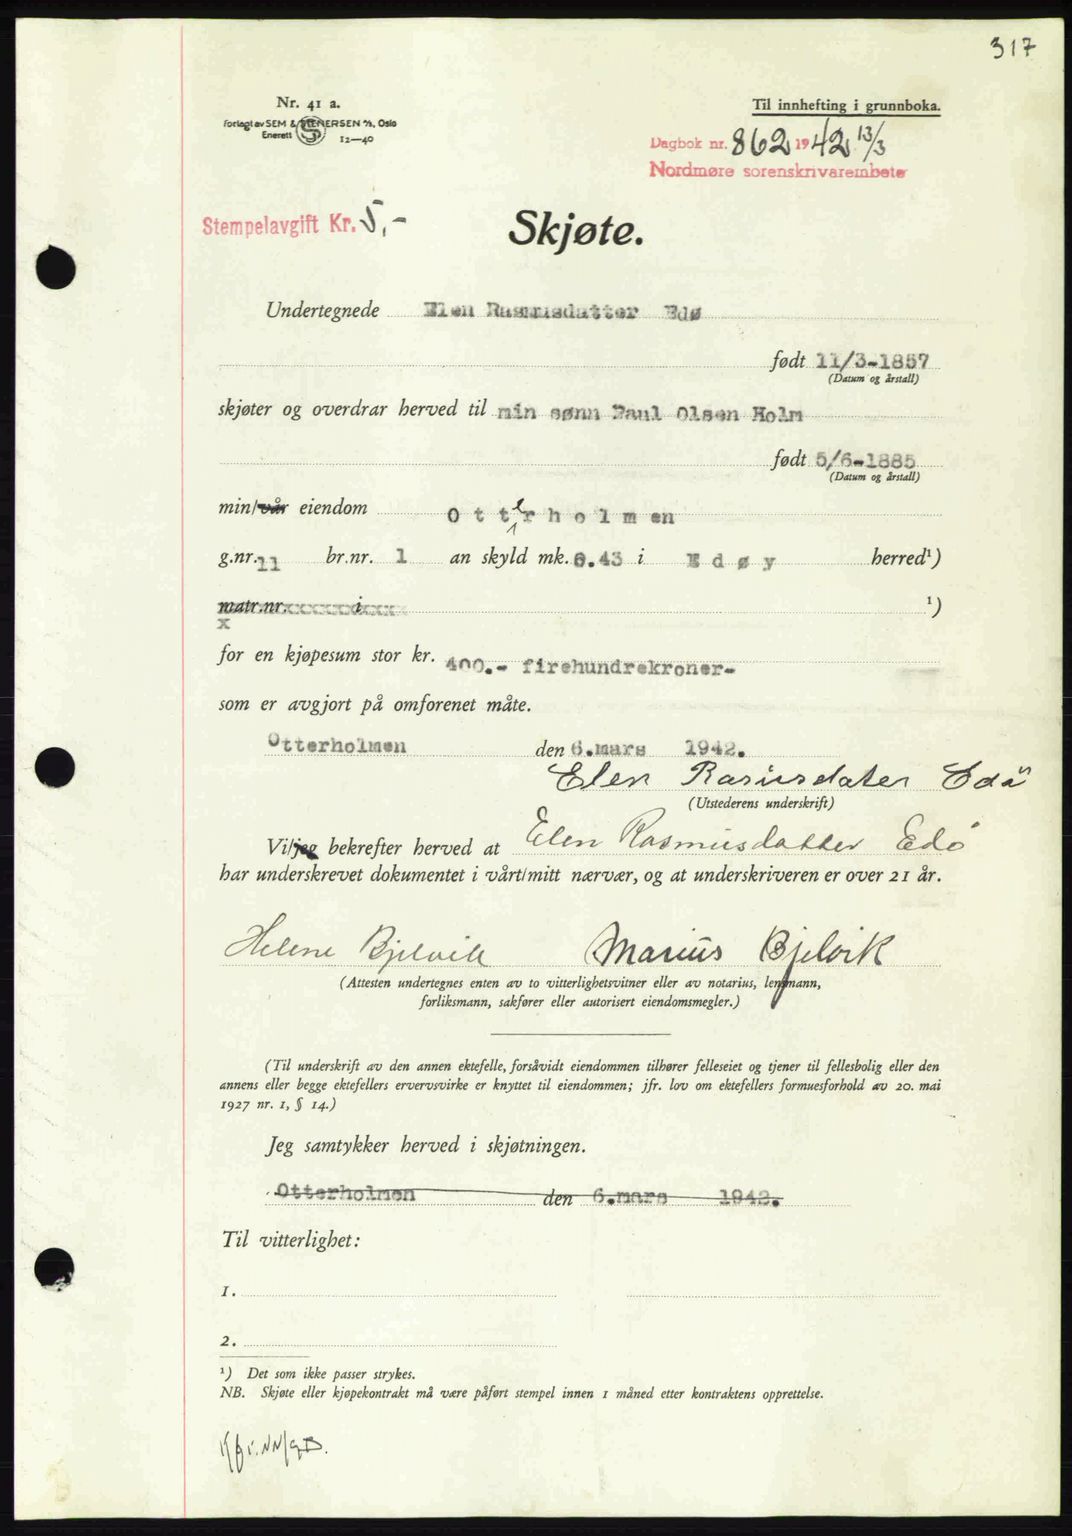 317
Nr. 41 a.
Forlagt av SEM & STENERSEN A/S, Oslo
Enerett
12—40
Til innhefting i grunnboka.
Dagbok nr. 862 1942 13/3
Nordmøre sorenskrivarembete
Stempelavgift Kr. 5,-
Skjøte.
Undertegnede Elen Rasmusdatter Edø
født 11/3-1857
(Datum og årstall)
skjøter og overdrar herved til min sønn Paul Olsen Holm
født 5/6-1885
(Datum og årstall)
min/vår eiendom Otterholmen
g.nr. 11 br.nr. 1 an skyld mk. 0.43 i Edøy herred¹)
matr.nr.xxxxxxxixxx ¹)
x
for en kjøpesum stor kr. 400.- firehundrekroner-
som er avgjort på omforenet måte.
Otterholmen den 6.mars 1942.
Elen Rasiusdater Edø
(Utstederens underskrift)
Vi/jeg bekrefter herved at Elen Rasmusdatter Edø
har underskrevet dokumentet i vårt/mitt nærvær, og at underskriveren er over 21 år.
Helene Bjelvik Marius Bjelvik
(Attesten undertegnes enten av to vitterlighetsvitner eller av notarius, lensmann,
forliksmann, sakfører eller autorisert eiendomsmegler.)
(Til underskrift av den annen ektefelle, forsåvidt eiendommen tilhører felleseiet og tjener til fellesbolig eller den
annens eller begge ektefellers ervervsvirke er knyttet til eiendommen; jfr. lov om ektefellers formuesforhold av 20. mai
1927 nr. 1, § 14.)
Jeg samtykker herved i skjøtningen.
Otterholmen den 6.mars 1942.
Til vitterlighet:
1.
2.
¹) Det som ikke passer strykes.
NB. Skjøte eller kjøpekontrakt må være påført stempel innen 1 måned etter kontraktens opprettelse.